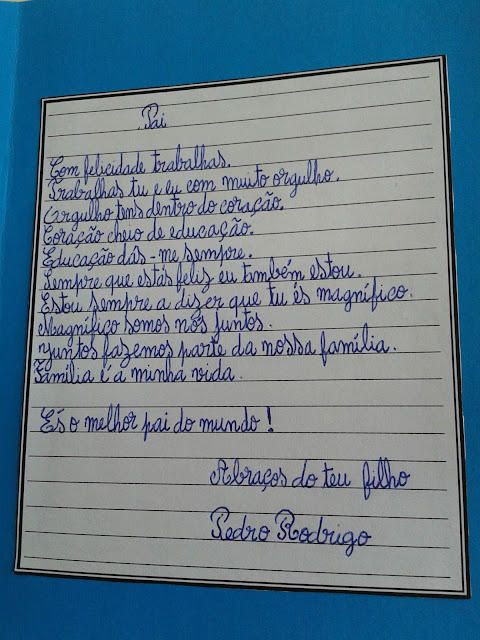 Pai
Com felicidade trabalhas.
Trabalhas tu e eu com muito orgulho.
Orgulho tens dentro do coração.
Coração cheio de educação.
Educação dás-me sempre.
Sempre que estás feliz eu também estou.
Estou sempre a dizer que tu és magnífico.
Magnífico somos nós juntos.
Juntos fazemos parte da nossa família.
Família é a minha vida.
És o melhor pai do mundo!
Abraços do teu filho
Pedro Rodrigo